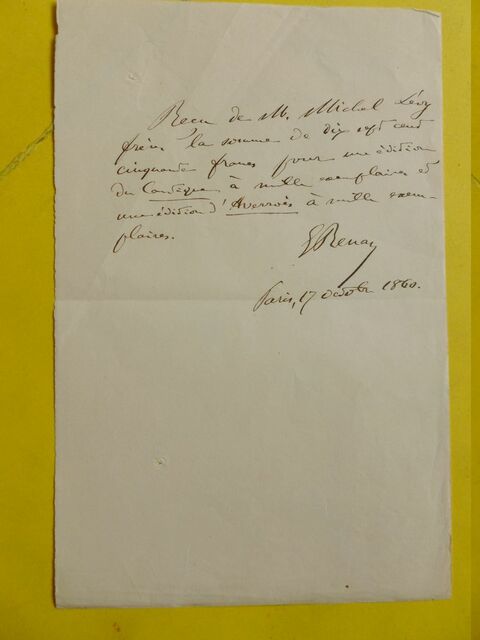 Reçu de M. Michel Lévy
frère, la somme de dix sept cent
cinquante francs pour une édition
du Cantique à mille exemplaires et
une édition d'Averroès à mille exem-
plaires.
E Renan
Paris, 17 octobre 1860.